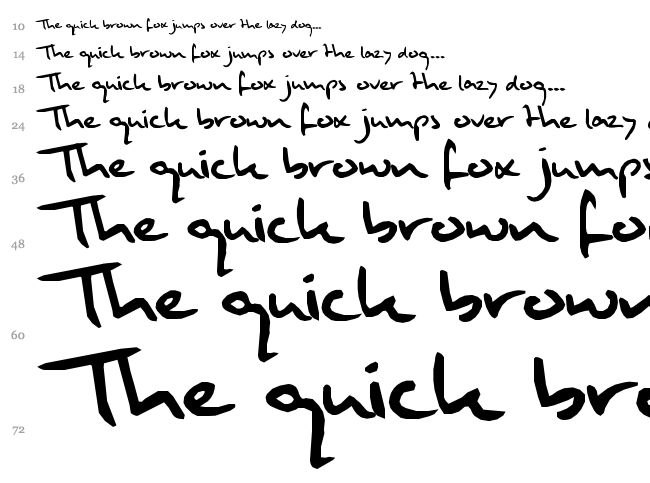 10 The quick brown fox jumps over the lazy dog...
14 The quick brown fox jumps over the lazy dog...
18 The quick brown fox jumps over the lazy dog...
24 The quick brown fox jumps over the lazy
36 The quick brown fox jumps
48 The quick brown fo
60 The quick brown
72 The quick bro